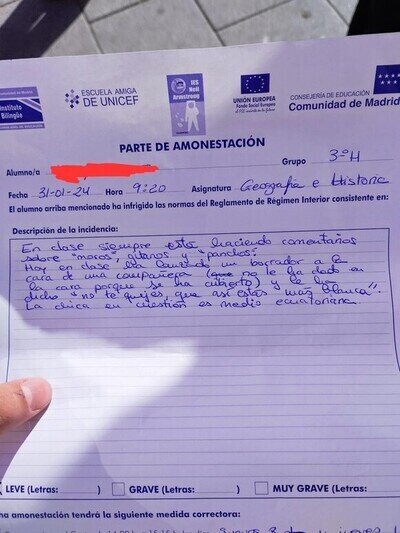 Comunidad de Madrid
Instituto
Bilingüe
ESCUELA AMIGA
DE UNICEF
IES
Neil
Armstrong
UNIÓN EUROPEA
Fondo Social Europeo
CONSEJERÍA DE EDUCACIÓN
Comunidad de Madrid
PARTE DE AMONESTACIÓN
Alumno/a
Grupo 3ºH
Fecha 31-01-24 Hora 9:20 Asignatura Geografía e Historia
El alumno arriba mencionado ha infrigido las normas del Reglamento de Régimen Interior consistente en:
Descripción de la incidencia:
En clase siempre está haciendo comentarios
sobre "moros", gitanos y "panchos".
Hoy en clase ha lanzado un borrador a la
cara de una compañera (no le ha dado en
la cara porque se ha cubierto) y le ha
dicho "no te quejes, que así estás más blanca".
La chica en cuestión es medio ecuatoriana.
LEVE (Letras: ) GRAVE (Letras: ) MUY GRAVE (Letras: )
a amonestación tendrá la siguiente medida correctora: